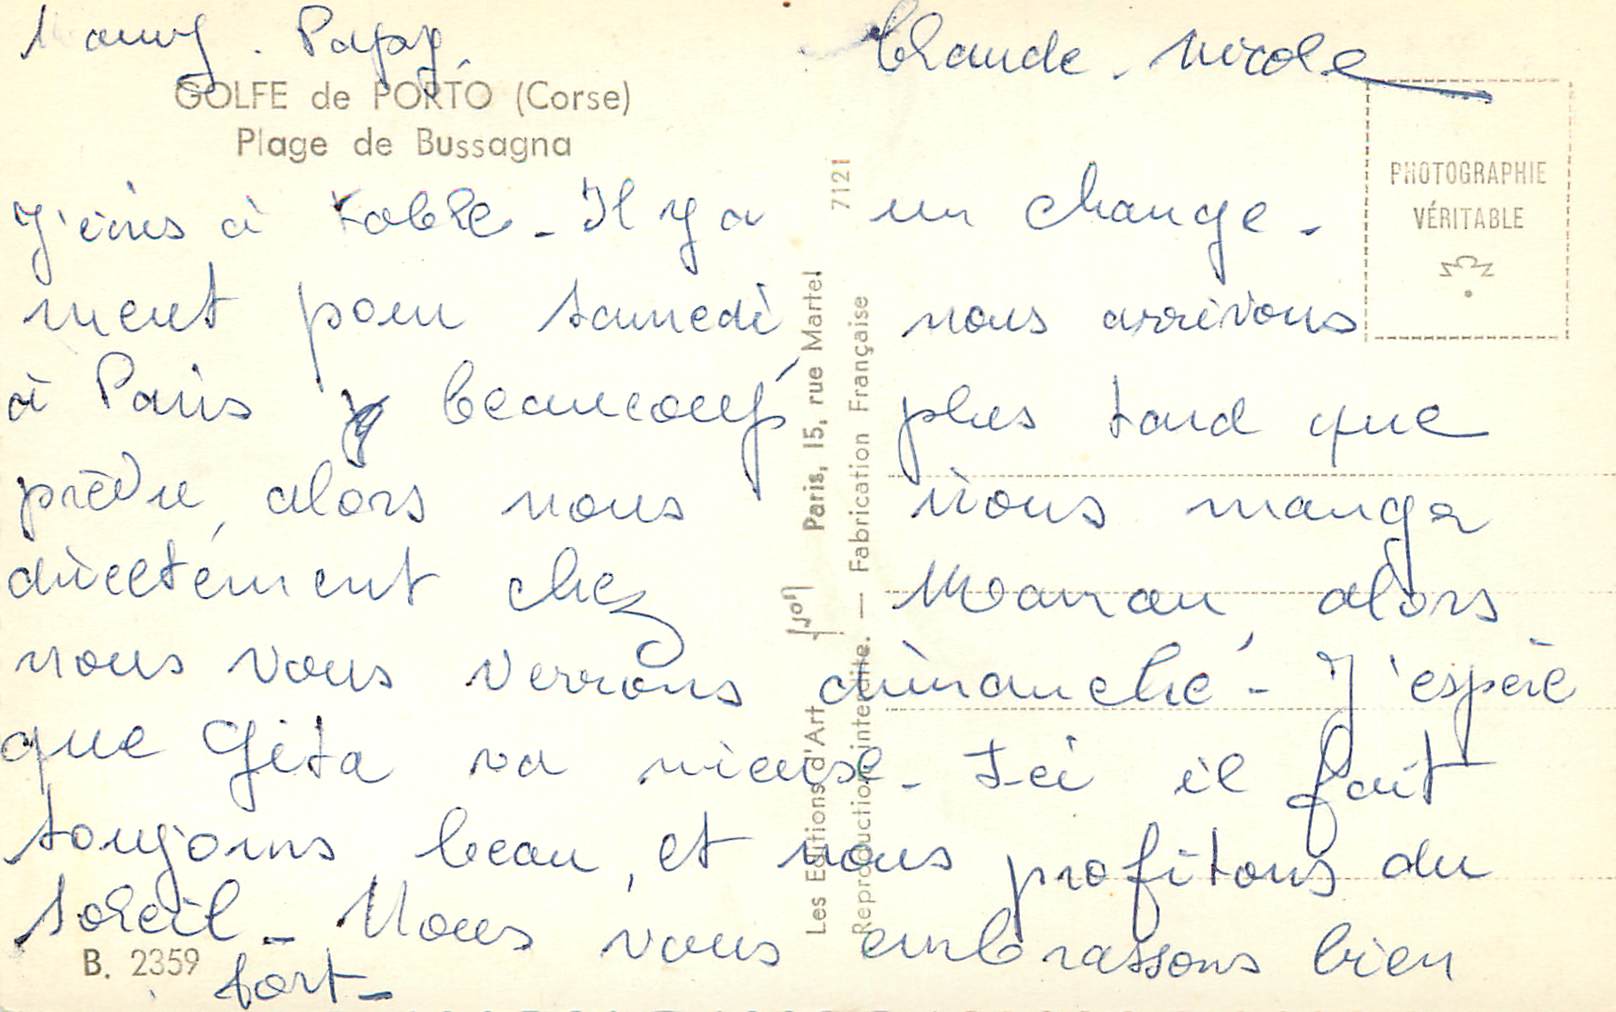 Mamy. Papy, Claude. Nicole
GOLFE de PORTO (Corse)
Plage de Bussagna
J'écris à table - Il y a un change-
ment pour samedi, nous arrivons
à Paris beaucoup plus tard que
prévu, alors nous irons manger
directement chez Maman, alors
nous vous verrons dimanche - J'espère
que Gita va mieux - Ici il fait
toujours beau, et nous profitons du
soleil - Nous vous embrassons bien
fort -
B. 2359
7121
Les Editions d'Art Paris, 15, rue Martel
Reproduction interdite. — Fabrication Française
PHOTOGRAPHIE
VÉRITABLE